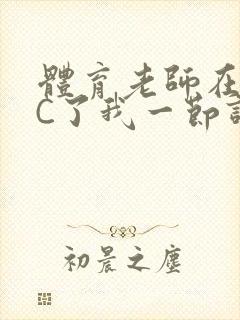 體育老師在
C了我一節
初晨之塵